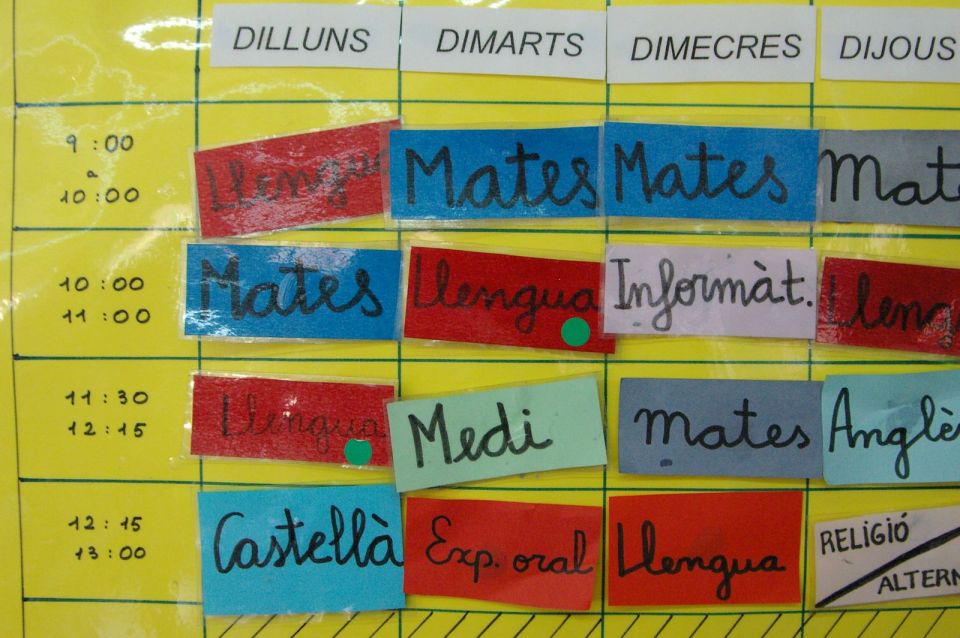 DILLUNS DIMARTS DIMECRES DIJOUS
9:00
a
10:00
Llengua Mates Mates
10:00
11:00
Mates Llengua Informàt.
11:30
12:15
Llengua Medi Mates
12:15
13:00
Castellà Exp. oral Llengua RELIGIÓ